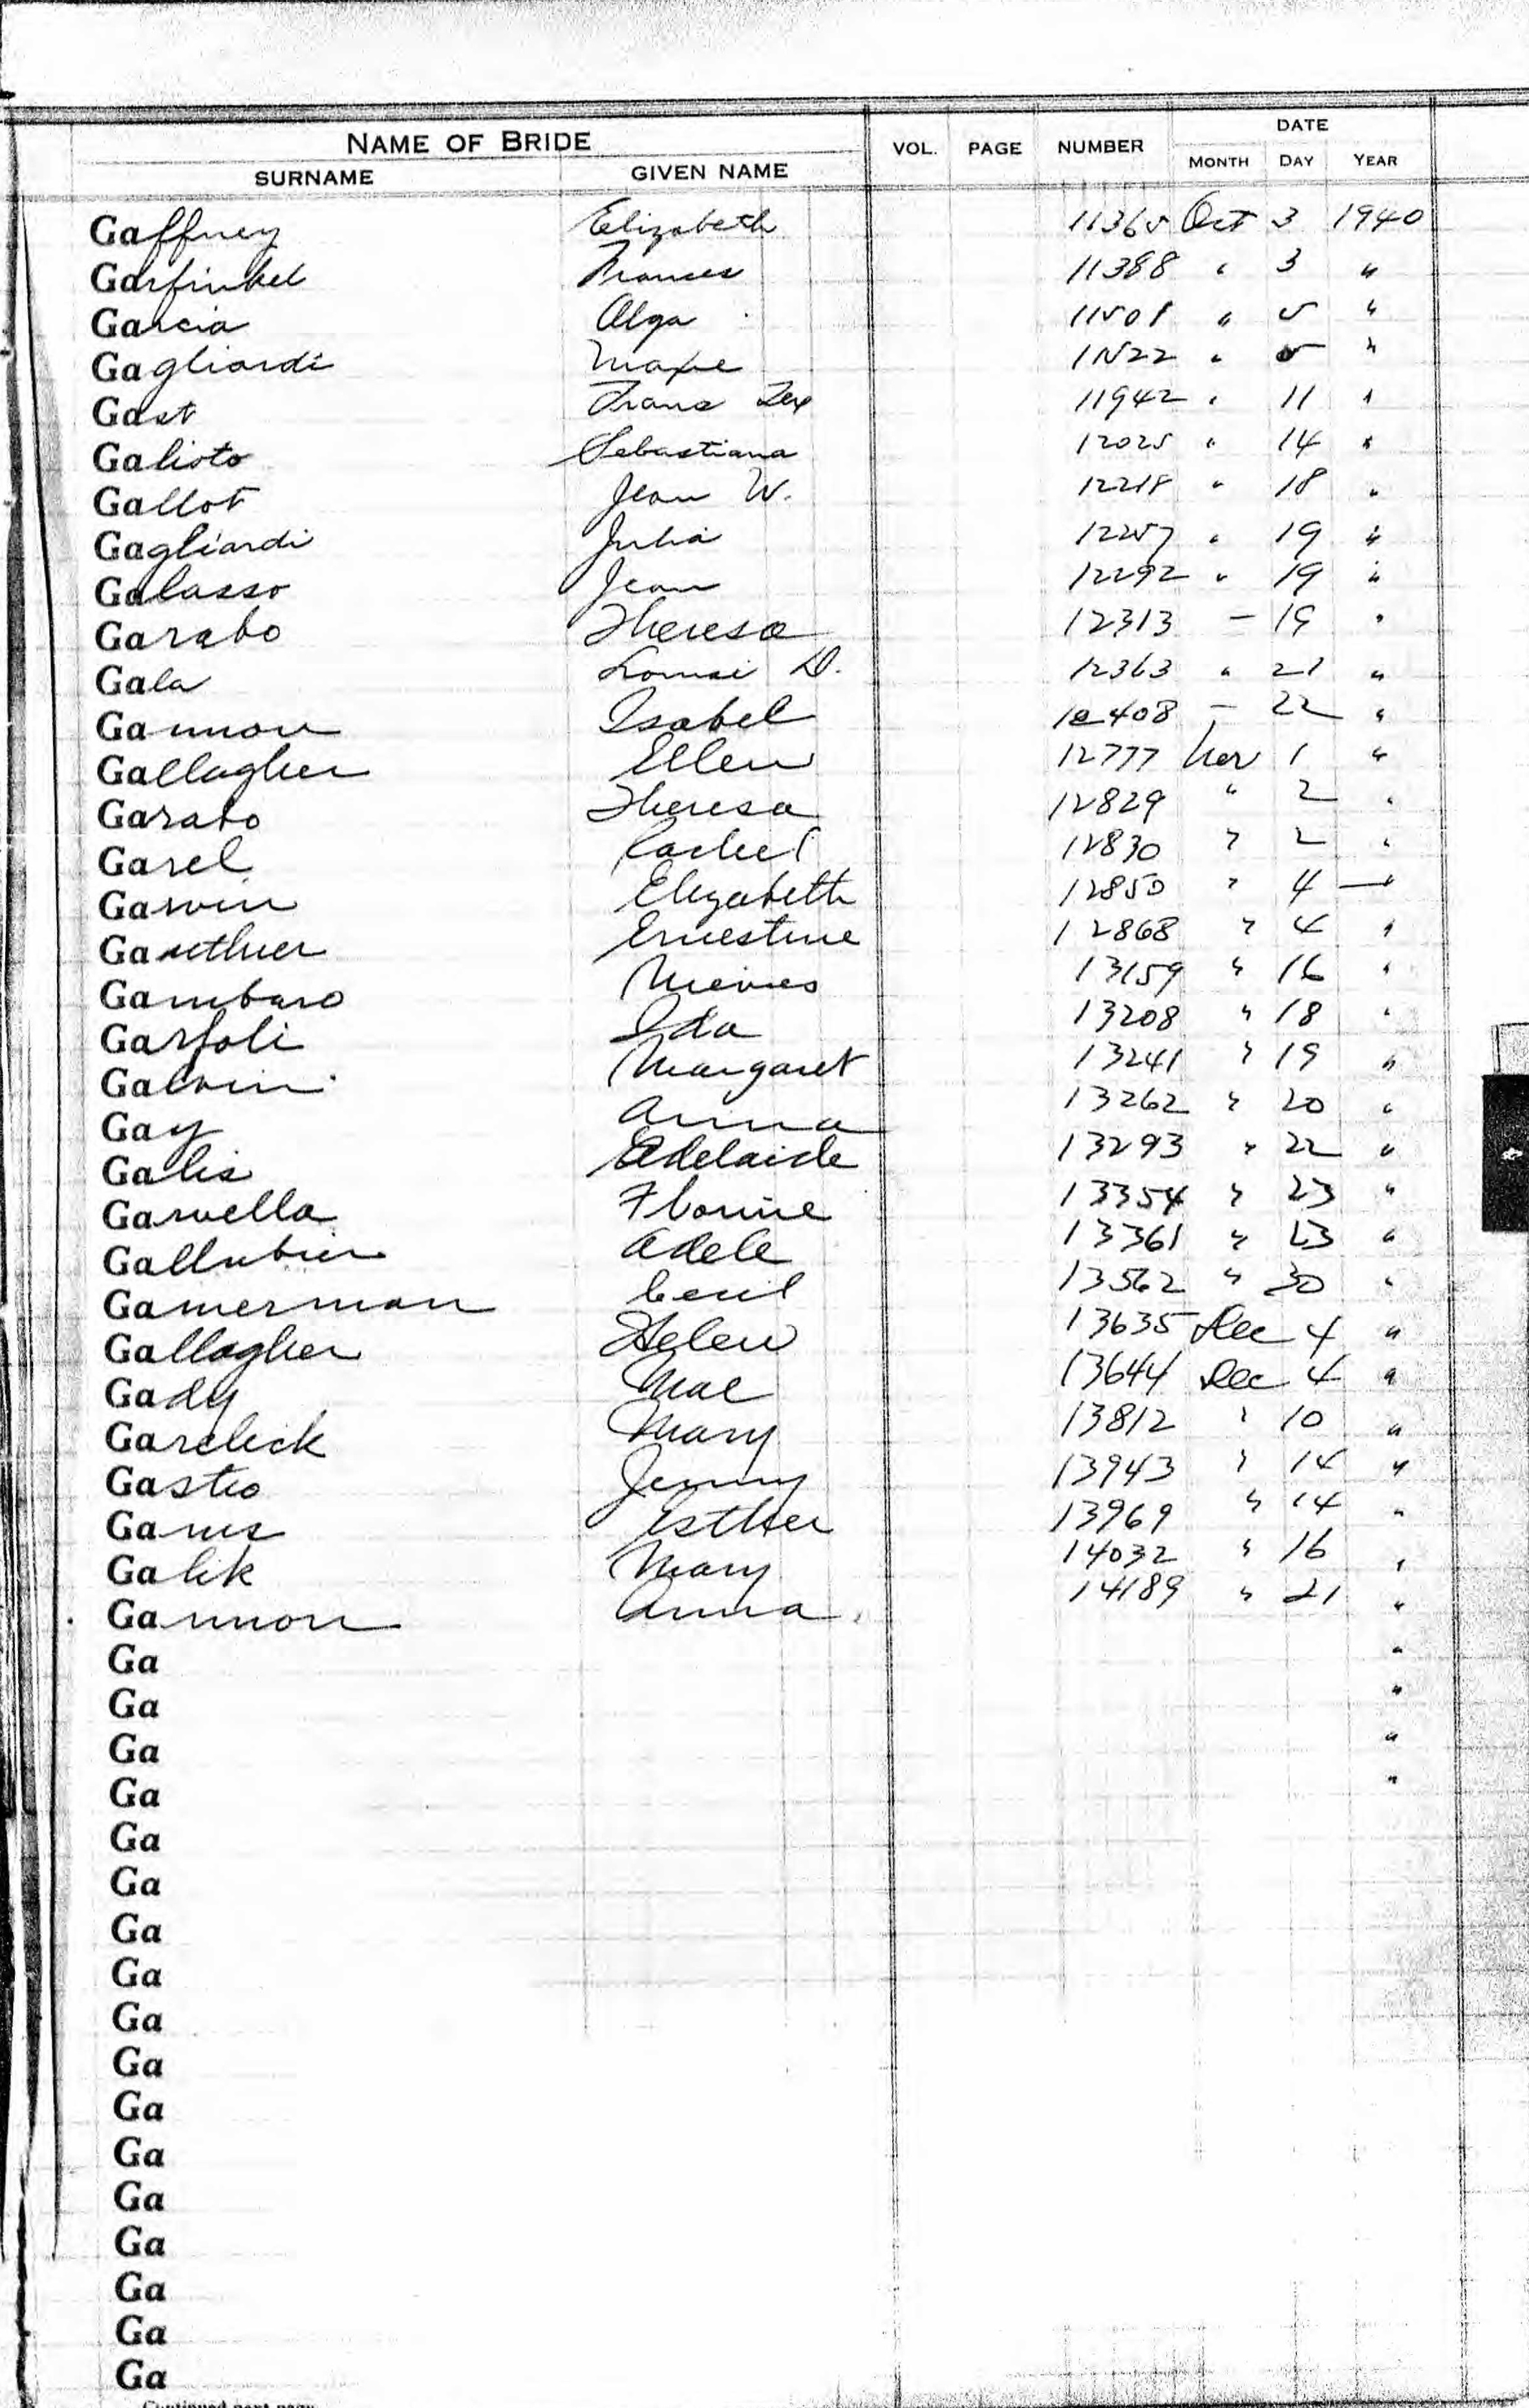 NAME OF BRIDE VOL. PAGE NUMBER DATE
SURNAME GIVEN NAME MONTH DAY YEAR
Gaffney Elizabeth 11365 Oct 3 1940
Garfinkel Frances 11388 " 3 "
Garcia Olga 11501 " 5 "
Gagliardi 11522 " 5 "
Gast 11942 " 11 "
Galioto Sebastiana 12025 " 14 "
Gallot Jean W. 12218 " 18 "
Gagliardi Julia 12257 " 19 "
Galasso Jean 12292 " 19 "
Garabo Theresa 12313 " 19 "
Gala D. 12363 " 21 "
Gannon Isabel 12408 " 22 "
Gallagher Ellen 12777 Nov 1 "
Garabo Theresa 12829 " 2 "
Garel Rachel 12830 " 2 "
Garvin Elizabeth 12850 " 4 "
Gauthier Ernestine 12868 " 4 "
Gambaro Nieves 13159 " 16 "
Garfoli Ida 13208 " 18 "
Galvin Margaret 13241 " 19 "
Gay Anna 13262 " 20 "
Galis Adelaide 13293 " 22 "
Garvella Florine 13354 " 23 "
Gallubier Adele 13361 " 23 "
Gamerman Cecil 13562 " 30 "
Gallagher Helen 13635 Dec 4 "
Gady Mae 13644 Dec 4 "
Garelick Mary 13812 " 10 "
Gastio Jenny 13943 " 14 "
Gans Esther 13969 " 14 "
Galik Mary 14032 " 16 "
Gannon Anna 14189 " 21 "
Ga "
Ga "
Ga "
Ga "
Ga
Ga
Ga
Ga
Ga
Ga
Ga
Ga
Ga
Ga
Ga
Ga
Ga